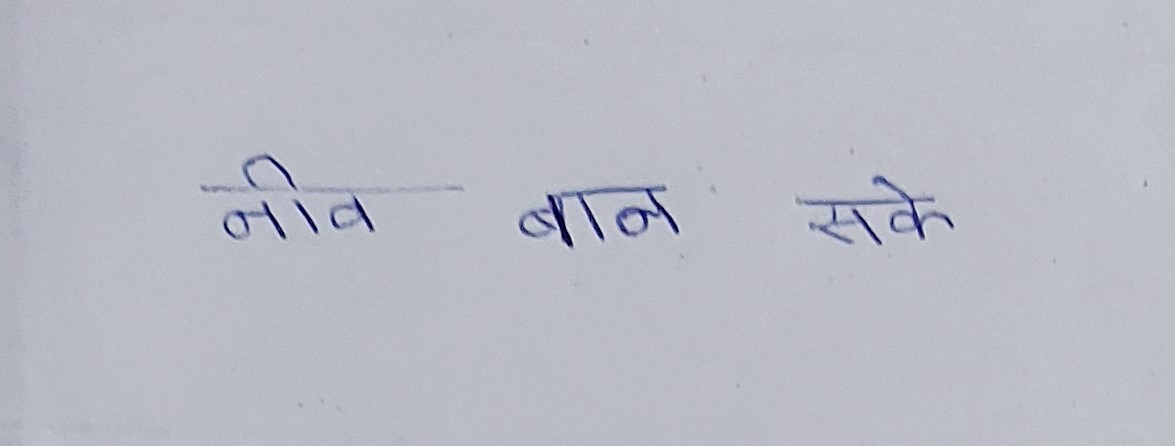 नीव बान सके